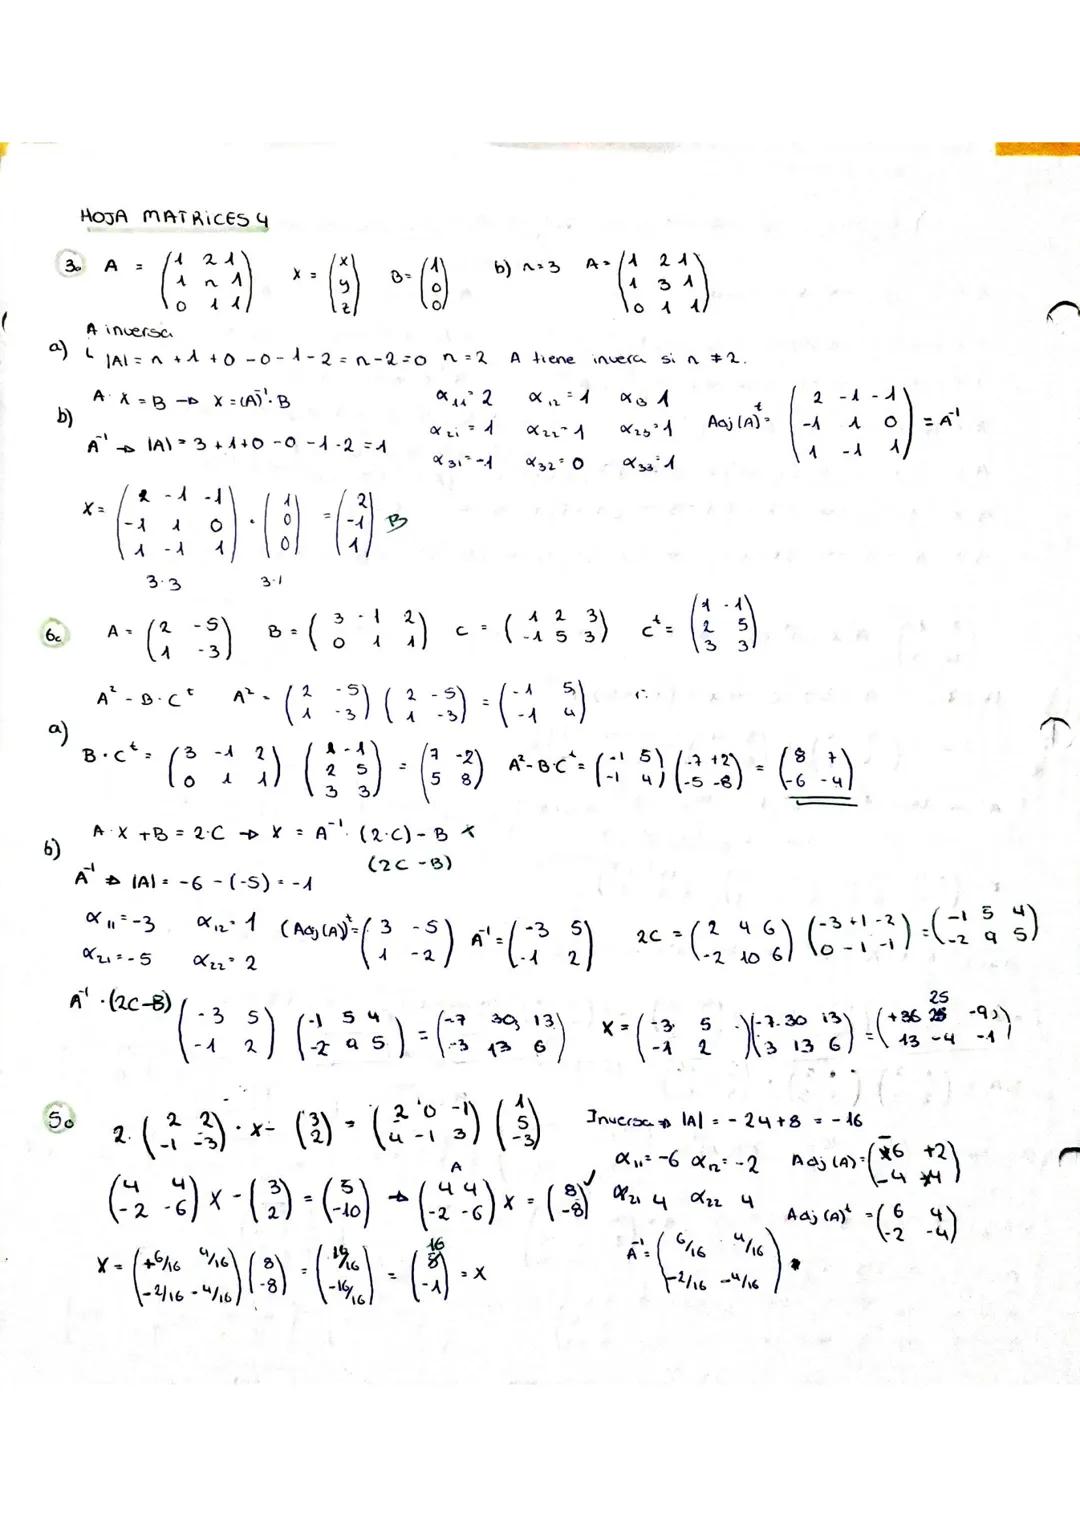 HOJA MATRICES 4
3. A = (1 2 1 / 1 n 1 / 0 1 1) X = (x / y / z) B = (1 / 0 / 0) b) n=3 A = (1 2 1 / 1 3 1 / 0 1 1)
A inversa
a) |A| = n + 1 + 0 - 0 - 1 - 2 = n - 2 = 0 n = 2 A tiene invera si n ≠ 2.
b) A · X = B → X = (A)⁻¹ · B α11 = 2 α12 = 1 α13 1
A⁻¹ → |A| = 3 + 1 + 0 - 0 - 1 - 2 = 1 α21 = 1 α22 = 1 α23 = 1 Adj (A)ᵗ = (2 -1 -1 / -1 1 0 / 1 -1 1) = A⁻¹
α31 = -1 α32 = 0 α33 = 1
X = (2 -1 -1 / -1 1 0 / 1 -1 1) · (1 / 0 / 0) = (2 / -1 / 1) B
3·3 3·1
6. A = (2 -5 / 1 -3) B = (3 -1 2 / 0 1 1) C = (1 2 3 / -1 5 3) Cᵗ = (1 -1 / 2 5 / 3 3)
A² - B · Cᵗ A² = (2 -5 / 1 -3) (2 -5 / 1 -3) = (-1 5 / -1 4)
a) B · Cᵗ = (3 -1 2 / 0 1 1) (1 -1 / 2 5 / 3 3) = (7 -2 / 5 8) A² - B·Cᵗ = (-1 5 / -1 4) (-7 +2 / -5 -8) = (8 7 / -6 -4)
b) A · X + B = 2 · C → X = A⁻¹ · (2·C) - B x
(2C - B)
A⁻¹ → |A| = -6 - (-5) = -1
α11 = -3 α12 = 1 (Adj (A))ᵗ = (3 -5 / 1 -2) A⁻¹ = (-3 5 / -1 2) 2C = (2 4 6 / -2 10 6) (-3 +1 -2 / 0 -1 -1) = (-1 5 4 / -2 9 5)
α21 = -5 α22 = 2
A⁻¹ · (2C-B) (-3 5 / -1 2) (-1 5 4 / -2 9 5) = (-7 30 13 / -3 13 6) X = (-3 5 / -1 2) (-7 30 13 / 3 13 6) = (+36 25 -9 / 13 -4 -1)
5. 2. (2 2 / -1 -3) · X - (3 / 2) = (2 0 -1 / 4 -1 3) (1 / 5 / -3) Inversa → |A| = -24 + 8 = -16
α11 = -6 α12 = -2 Adj (A) = (-6 +2 / -4 4)
A
(4 4 / -2 -6) X - (3 / 2) = (5 / -10) → (4 4 / -2 -6) X = (8 / -8) ✓ α21 4 α22 4 Adj (A)ᵗ = (6 4 / -2 -4)
X = (+6/16 4/16 / -2/16 -4/16) (8 / -8) = (16/16 / -16/16) = (16 / -1) = X A⁻¹ = (6/16 4/16 / -2/16 -4/16)